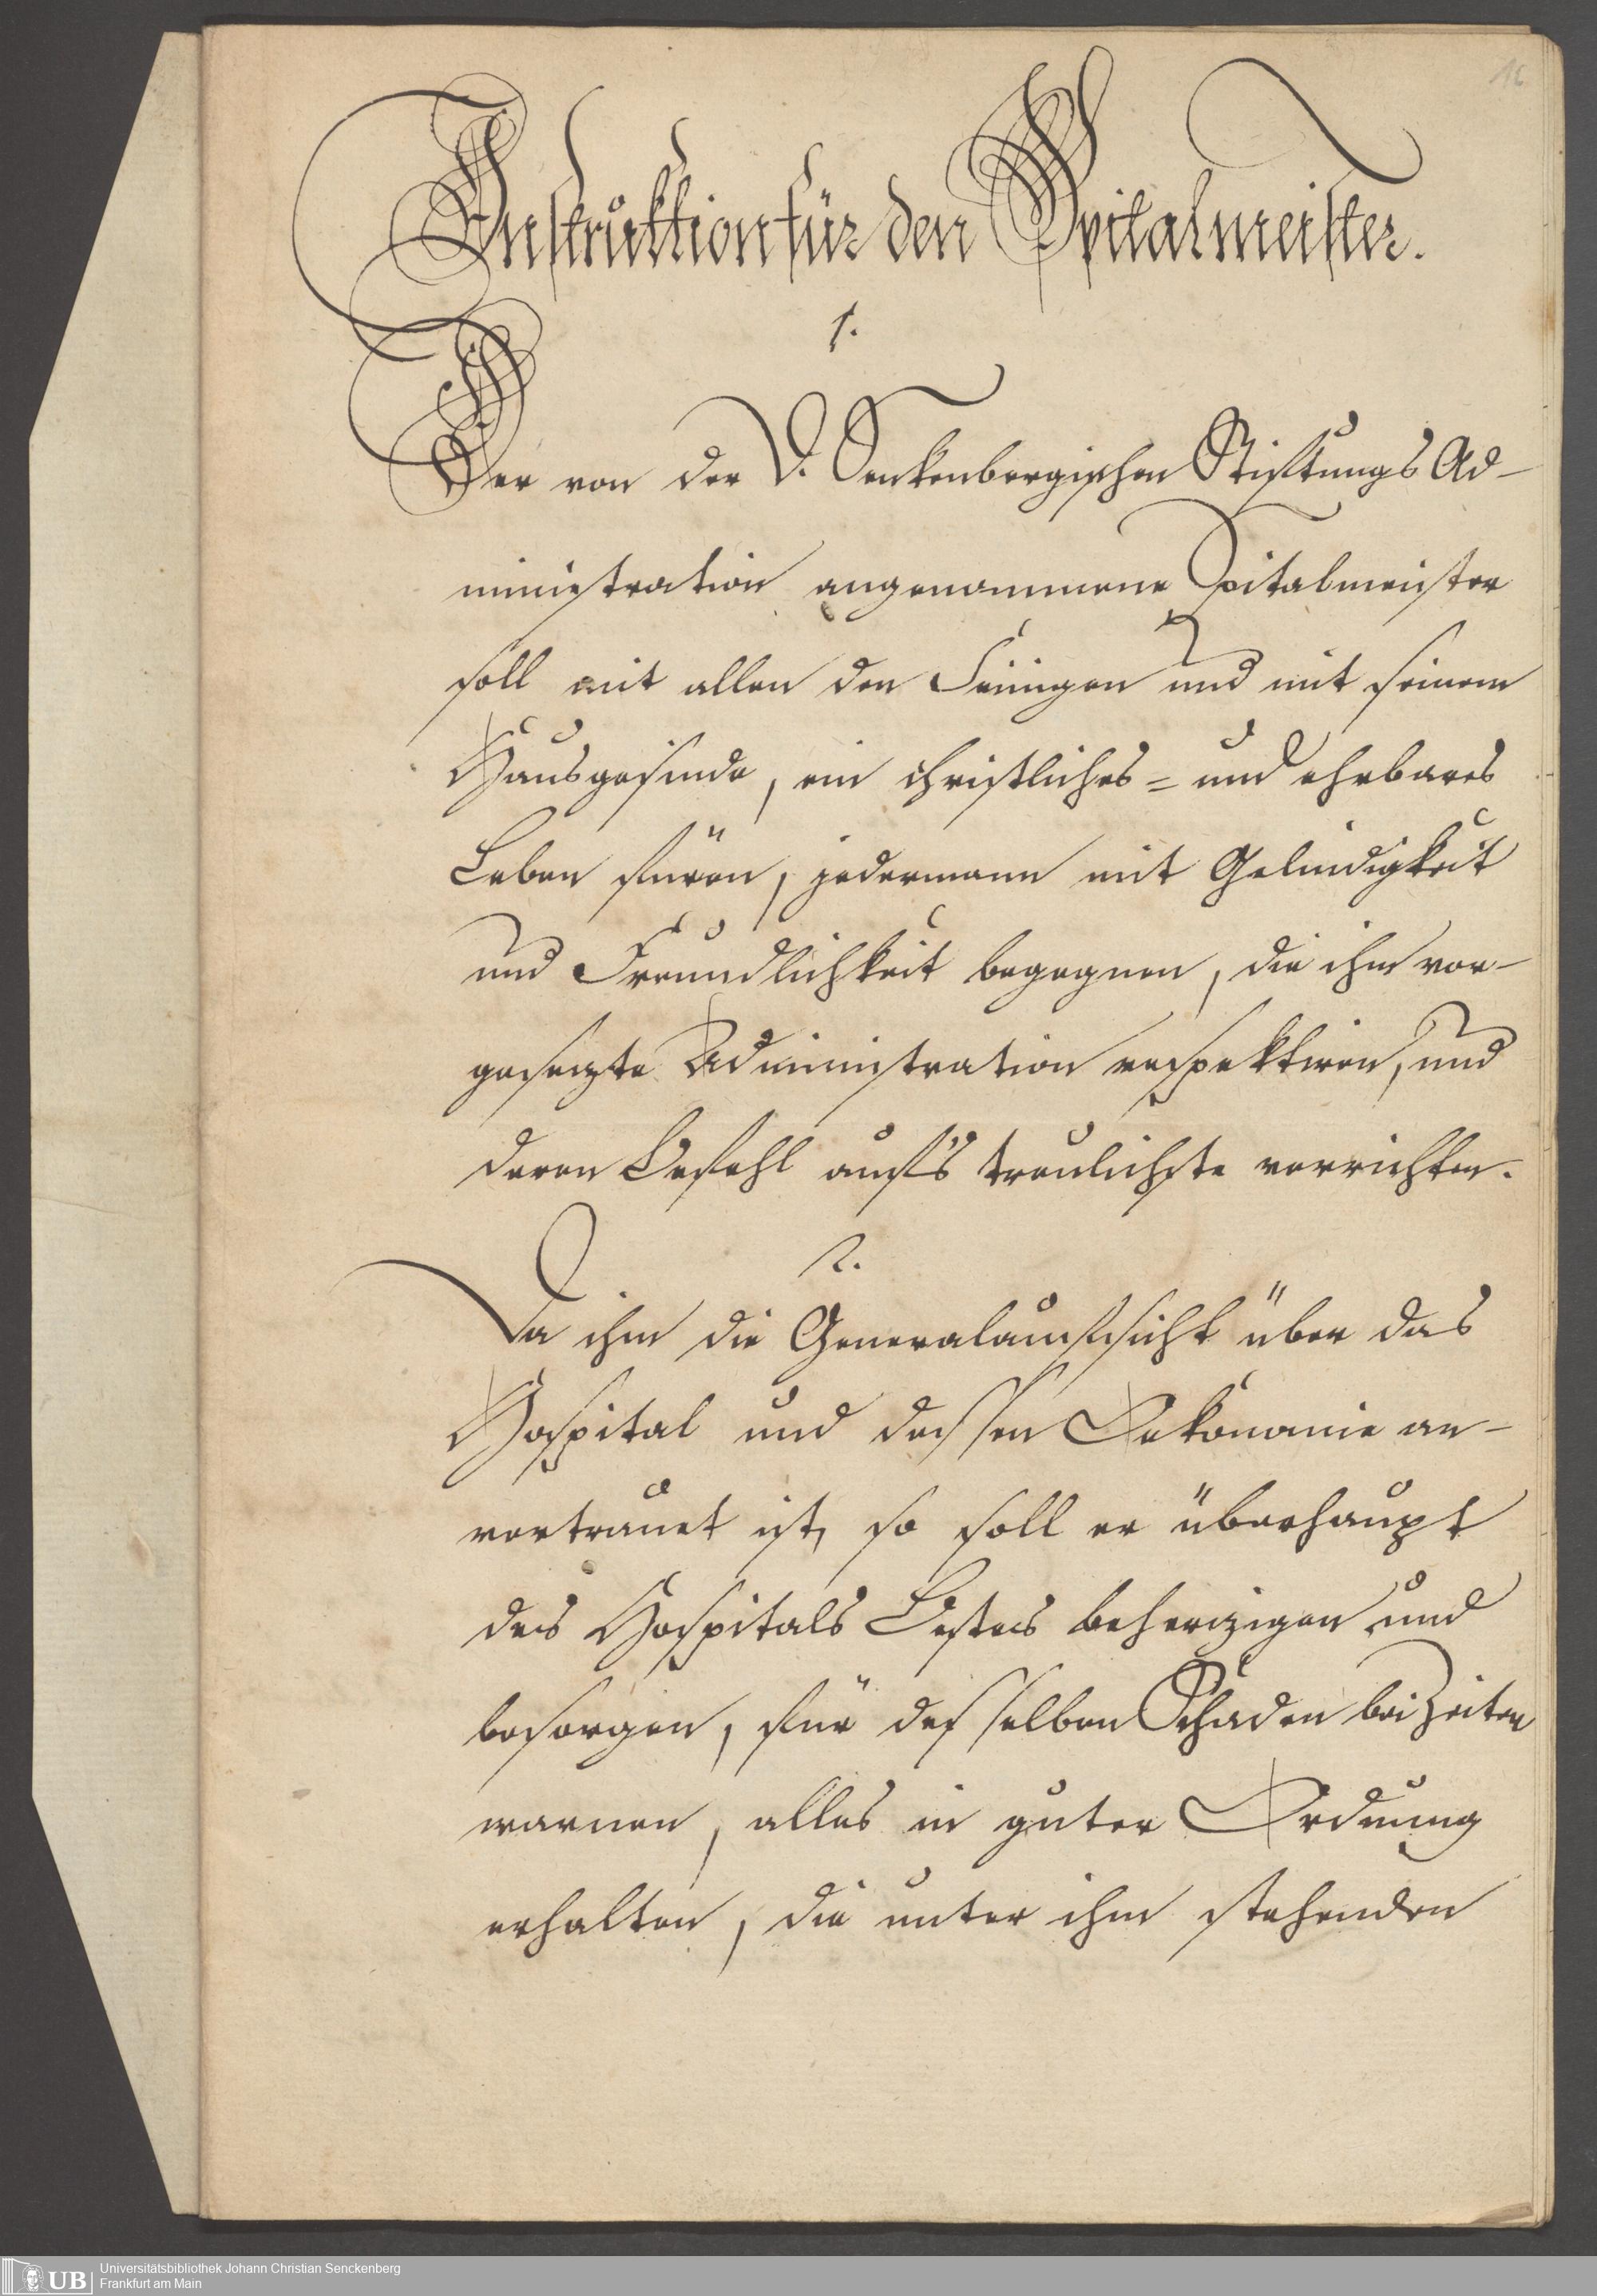 16
Instruktion für den Spitalmeister.
1.
Der von der D. Senkenbergischen Stiftungs Ad-
ministration angenommene Spitalmeister
soll mit allen den Seinigen und mit seinem
Hausgesinde, ein christliches = und ehrbares
Leben füren, jedermann mit Gelindigkeit
und Freundlichkeit begegnen, die ihm vor-
gesezte Administration respektiren, und
deren Befehl auf's treulichste verrichten.
2.
Da ihm die Generalaufsicht über das
Hospital und dessen Oekonomie an-
vertrauet ist, so soll er überhaupt
des Hospitals Bestes beherzigen und
besorgen, für desselben Schaden bei Zeiten
warnen, alles in guter Ordnung
erhalten, die unter ihm stehenden
UB
Universitätsbibliothek Johann Christian Senckenberg
Frankfurt am Main